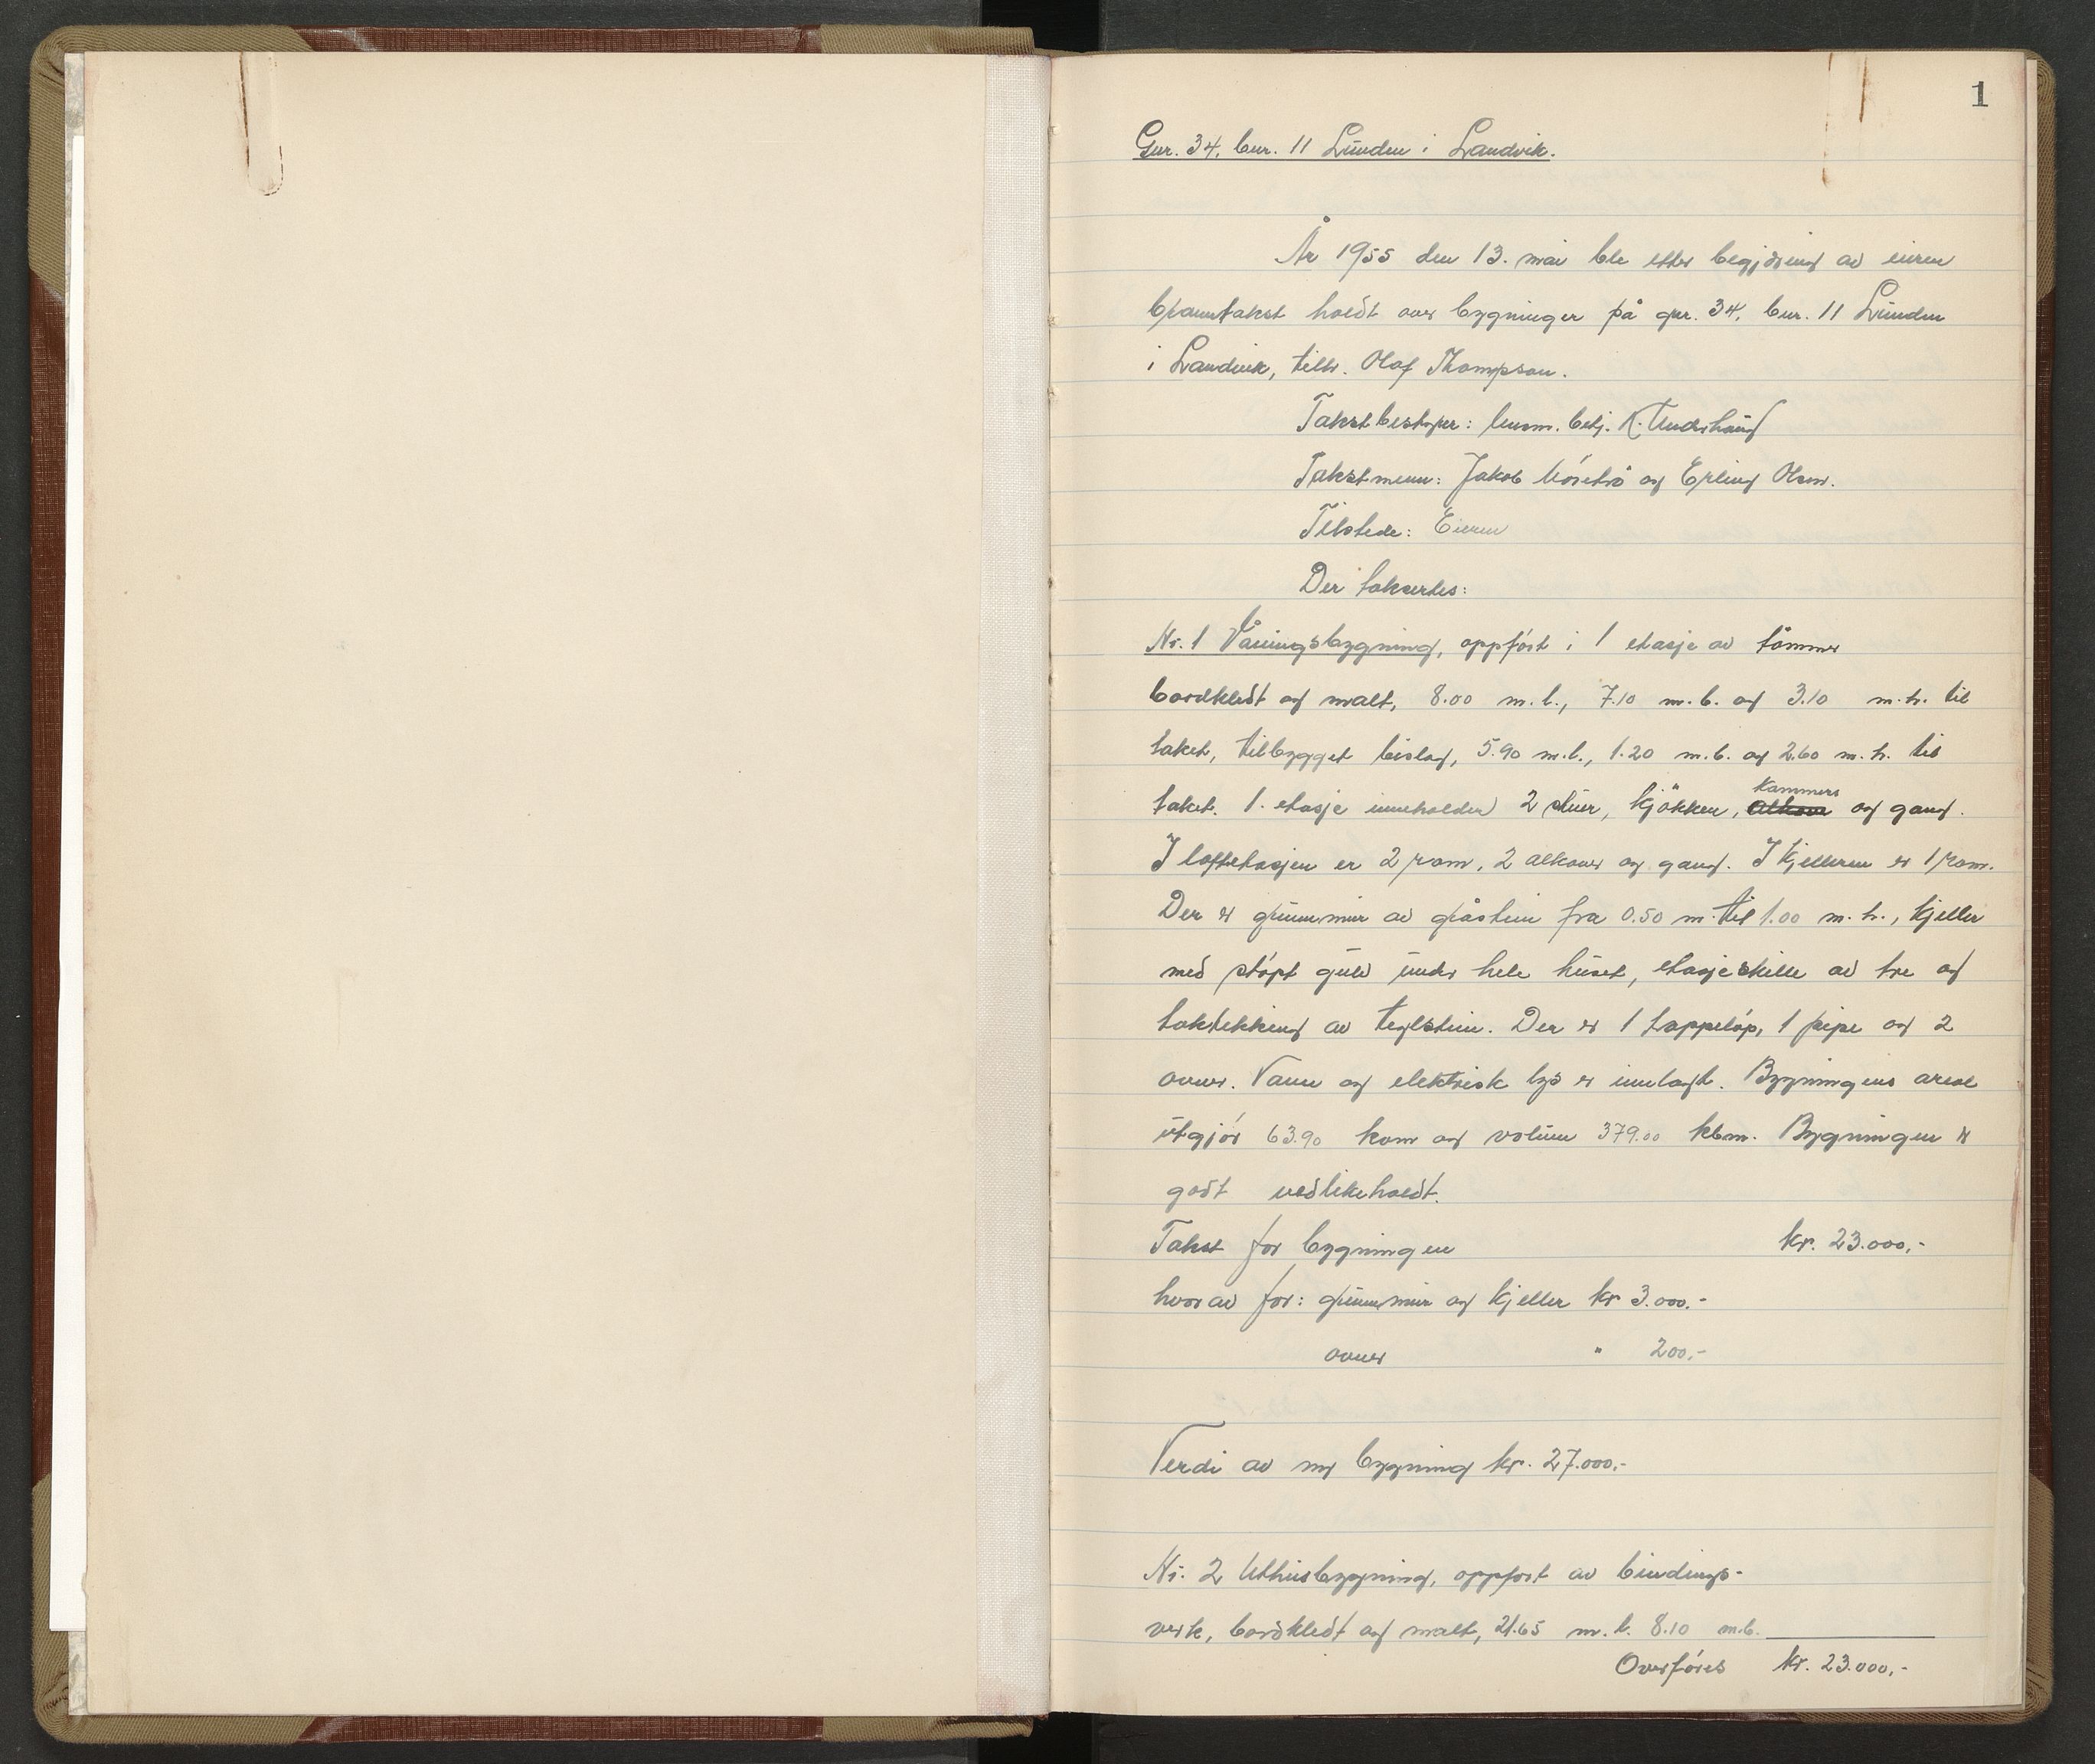 1
Gnr. 34, bnr. 11 Lunden i Landvik.
År 1955 den 13. mai ble etter begjæring av eieren
branntakst holdt over bygninger på gnr. 34, bnr. 11 Lunden
i Landvik, tilh. Olaf Thompson.
Takstbestyrer: lensm. betj. K.
Takstmenn: Jakob og Erling Olsen.
Tilstede: Eieren
Der taksertes:
Nr. 1 Våningsbygning, oppført i 1 etasje av tømmer
bordkledt og malt, 8.00 m.l., 7.10 m.b. og 3.10 m.h. til
taket, tilbygget bislag, 5.90 m.l., 1.20 m.b. og 2.60 m.h. til
taket. 1. etasje inneholder 2 stuer, kjøkken, alkove kammers og gang.
I loftetasjen er 2 rom, 2 alkover og gang. I kjelleren er 1 rom.
Der er grunnmur av gråstein fra 0.50 m. til 1.00 m.h., kjeller
med støpt gulv under hele huset, etasjeskille av tre og
taktekking av teglstein. Der er 1 trappeløp, 1 pipe og 2
ovner. Vann og elektrisk lys er innlagt. Bygningens areal
utgjør 63.90 kvm og volum 379.00 kbm. Bygningen er
godt vedlikeholdt.
Takst for bygningen kr. 23.000,-
hvorav for: grunnmur og kjeller kr 3.000.-
ovner " 200,-
Verdi av ny bygning kr. 27.000,-
Nr. 2 Uthusbygning, oppført av bindings-
verk, bordkledt og malt, 21.65 m.l. 8.10 m.b.
Overføres kr. 23.000,-